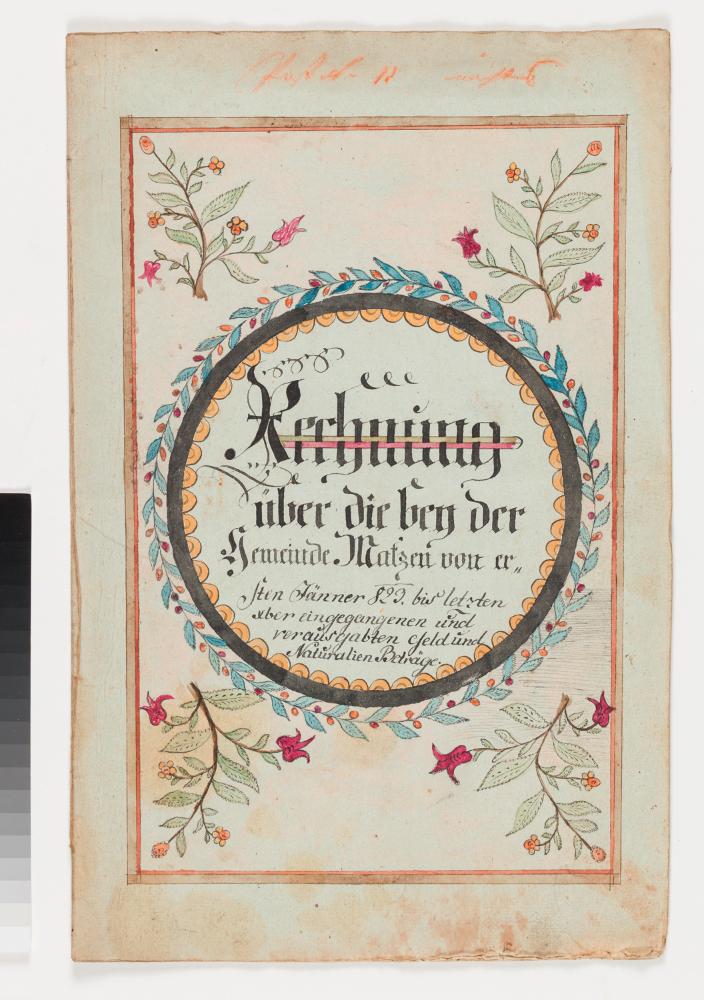 Rechnung
über die bey der
Gemeinde Matzen von er„
sten Jänner 829. bis letzten
xber eingegangenen und
verausgabten Geld und
Naturalien Beträge.